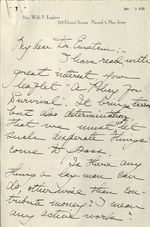 Mrs. Wells P. Eagleton
Newark 4, New Jersey
My dear Dr. Einstein:-
I have read with
great interest your
leaflet "A Policy for
Survival". It brings terror
but also determination
that we must not let
such desperate things
come to pass.
Is there any
thing a lay-man can
do, other wise than con-
tribute money? I mean
any active work?